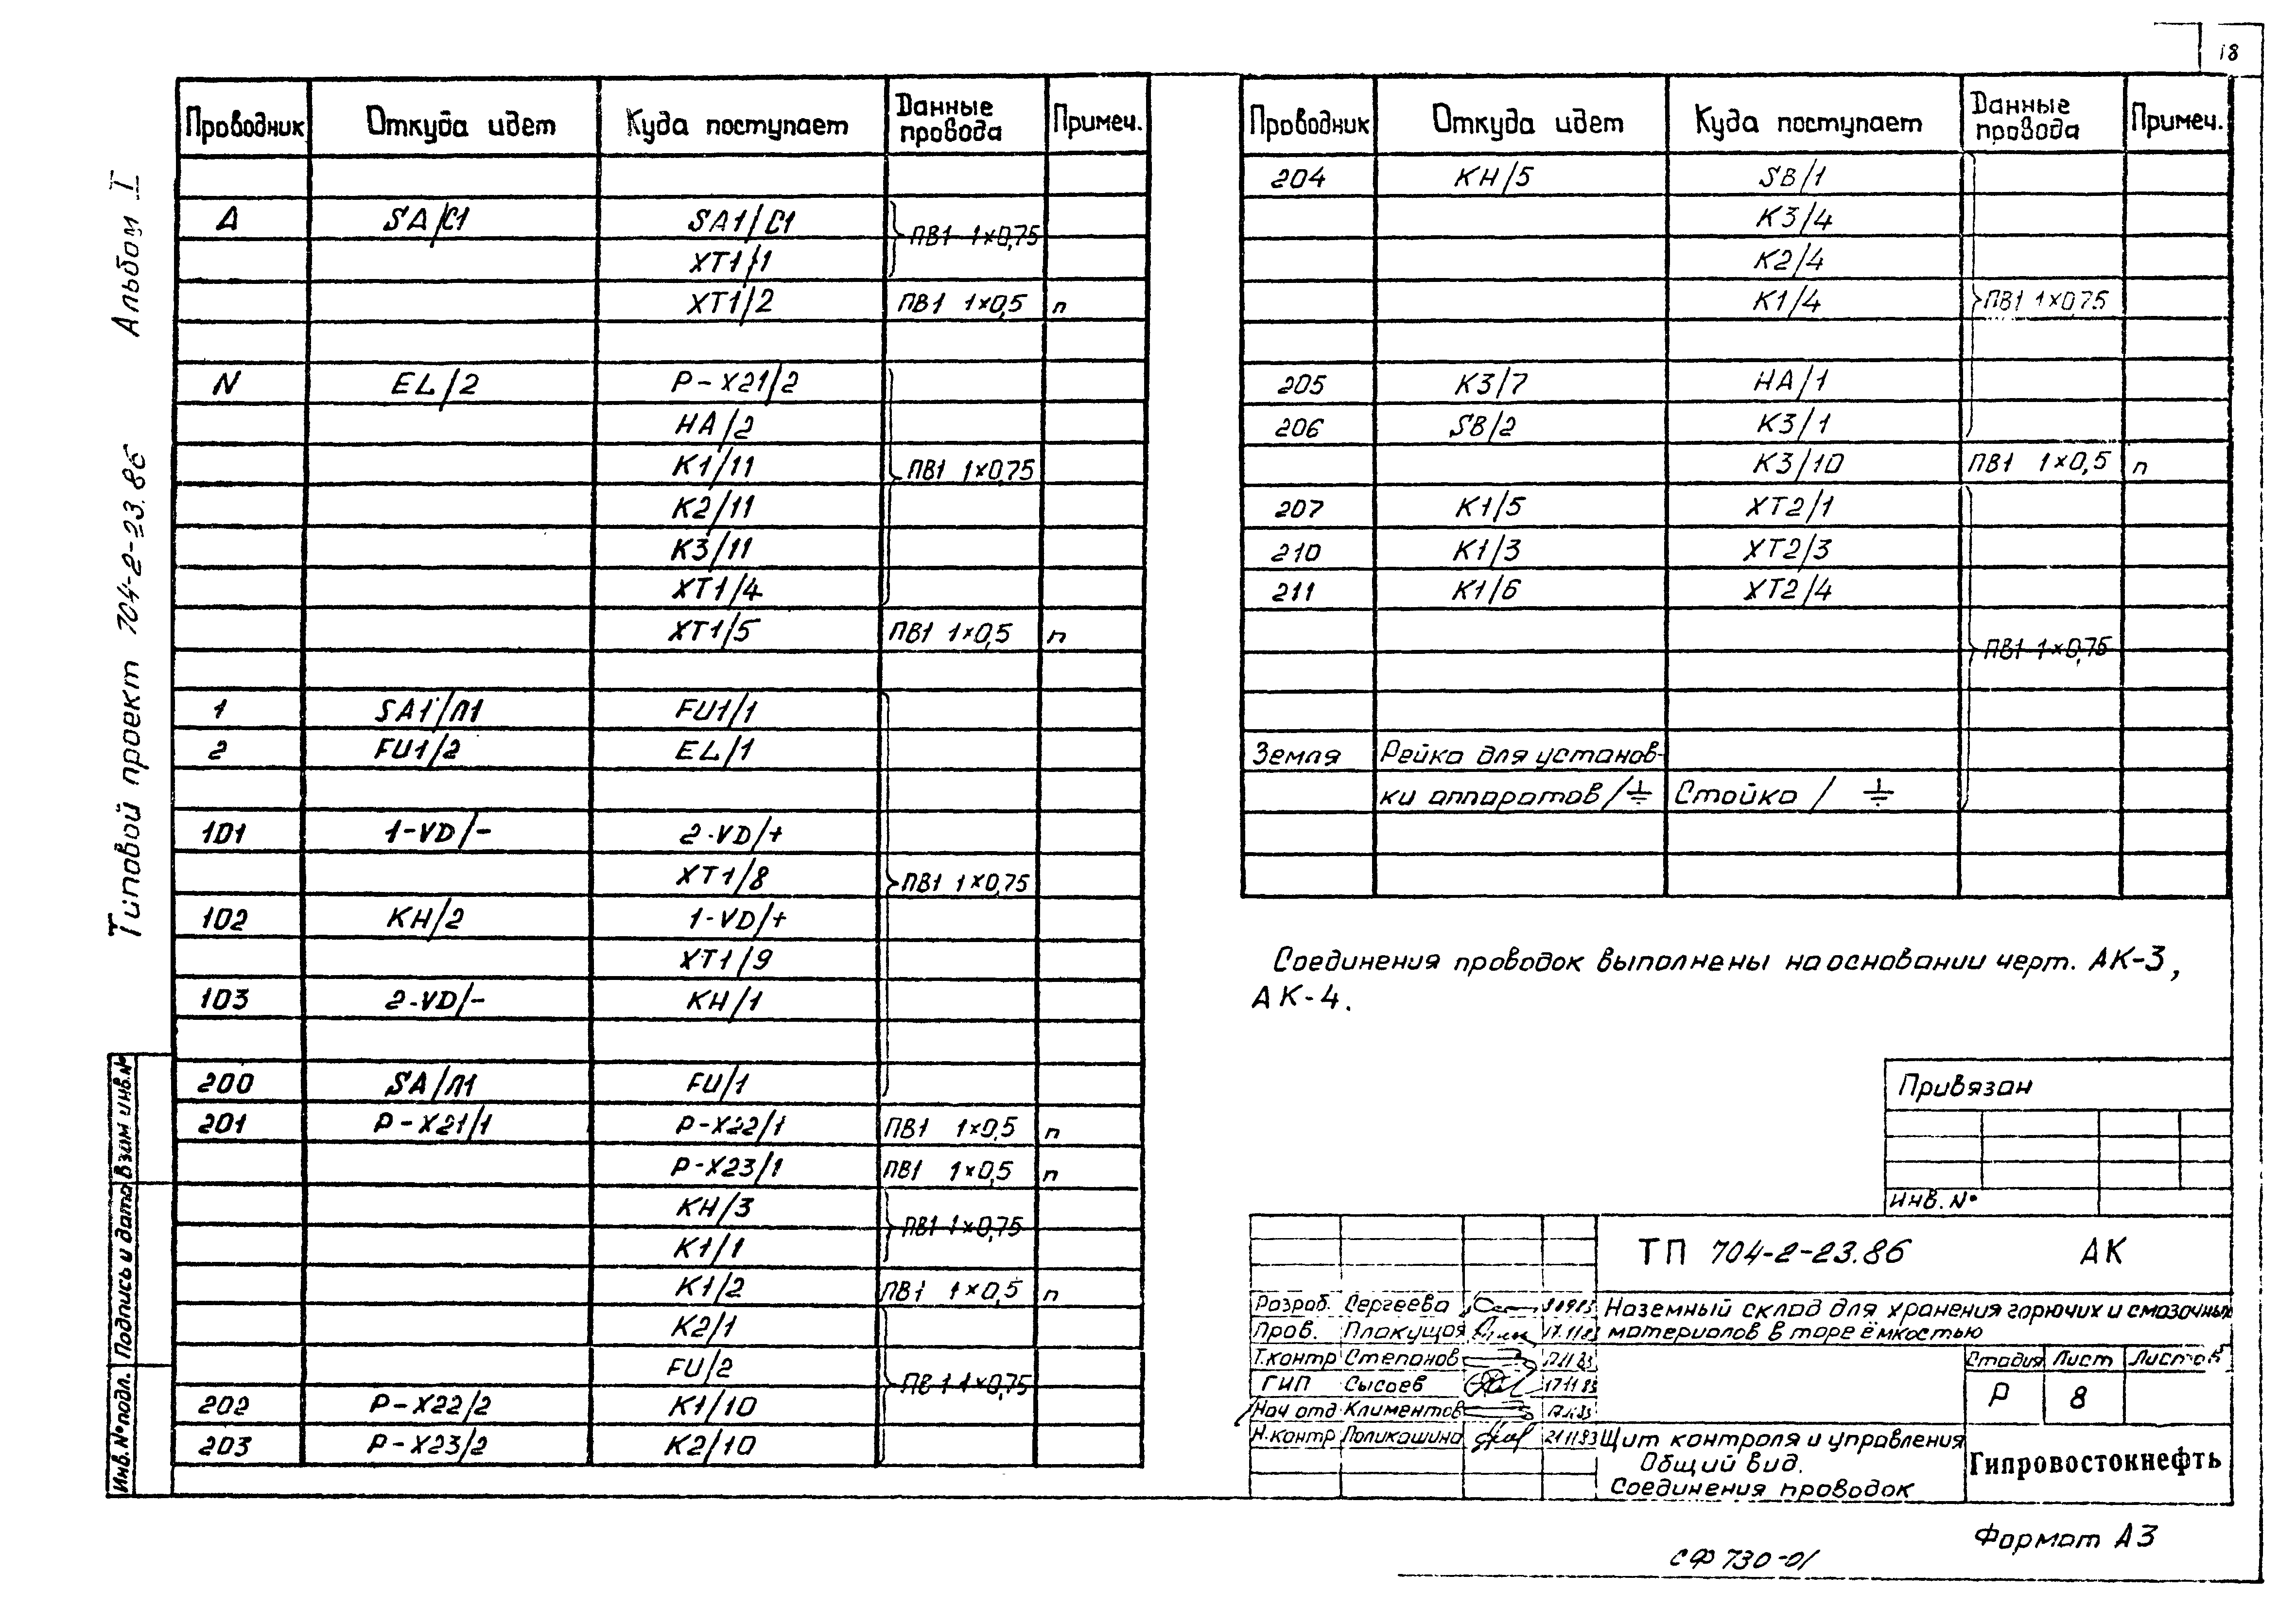 18
Альбом I
Типовой проект 704-2-23.86
Проводник Откуда идет Куда поступает Данные провода Примеч.
А SA/С1 SA1/С1 ПВ1 1×0,75
XT1/1
XT1/2 ПВ1 1×0,5 п
N EL/2 P-X21/2
HA/2
K1/11 ПВ1 1×0,75
K2/11
K3/11
XT1/4
XT1/5 ПВ1 1×0,5 п
1 SA1/Л1 FU1/1
2 FU1/2 EL/1
101 1-VD/- 2-VD/+
XT1/8 ПВ1 1×0,75
102 KH/2 1-VD/+
XT1/9
103 2-VD/- KH/1
200 SA/Л1 FU/1
201 P-X21/1 P-X22/1 ПВ1 1×0,5 п
P-X23/1 ПВ1 1×0,5 п
KH/3 ПВ1 1×0,75
K1/1
K1/2 ПВ1 1×0,5 п
K2/1
FU/2 ПВ1 1×0,75
202 P-X22/2 K1/10
203 P-X23/2 K2/10
Проводник Откуда идет Куда поступает Данные провода Примеч.
204 KH/5 SB/1
K3/4
K2/4
K1/4 ПВ1 1×0,75
205 K3/7 HA/1
206 SB/2 K3/1
K3/10 ПВ1 1×0,5 п
207 K1/5 XT2/1
210 K1/3 XT2/3
211 K1/6 XT2/4
ПВ1 1×0,75
Земля Рейка для установ-
ки аппаратов/⏚ Стойка / ⏚
Соединения проводок выполнены на основании черт. АК-3,
АК-4.
Привязан
Инв. №
ТП 704-2-23.86 АК
Разраб. Сергеева
Пров. Плакущая
Т.контр Степанов
ГИП Сысоев 17.11.83
Нач отд Климентов
Н.контр Поликашина 21.11.83
Наземный склад для хранения горючих и смазочных
материалов в таре ёмкостью
Стадия Лист Листов
Р 8
Щит контроля и управления
Общий вид.
Соединения проводок
Гипровостокнефть
Инв. № подл. Подпись и дата Взам инв. №
Формат А3
СФ 730-01